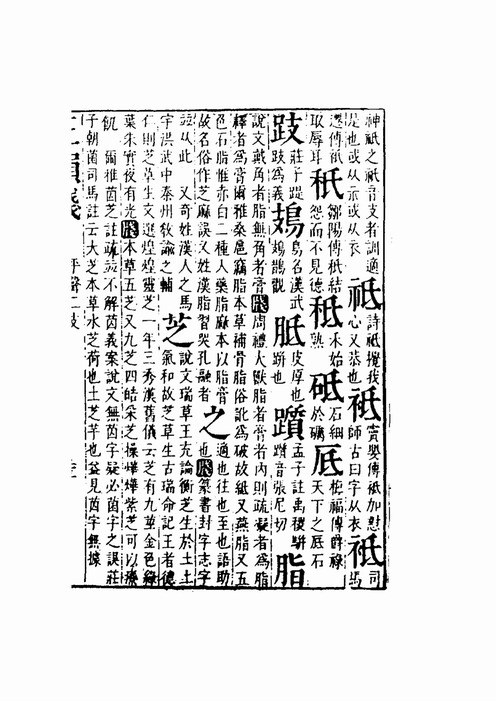 神祇之祇音支者訓適是也或从示或从衣祗詩祗攪我心又恭也祗竇嬰傳祗加懟師古曰字从衣祇司馬
遷傳祇取辱耳秖鄒陽傳秖結怨而不見德秪禾始熟砥石細於礪厎梅福傳爵祿天下之厎石
跂莊子踶跂爲義鳷鳥名漢武鳷鵲觀胝皮厚也胼也躓孟子註禹稷胼躓音張尼切脂
說文戴角者脂無角者膏牋周禮大獸脂者膏者內則疏凝者爲脂
釋者爲膏爾雅桑扈竊脂本草補骨脂俗訛爲破故紙又燕脂又五
色石脂惟赤白二種入藥脂麻本以脂膏故名俗作芝麻誤又姓漢脂習哭孔融者之適也往也至也語助也牋篆書封字志字
並从此 又奇姓漢人之馬字洪武中泰州敎諭之輔芝說文瑞草王充論衡芝生於土土氣和故芝草生古瑞命記王者德
仁則芝草生文選煌煌靈芝一年三秀漢舊儀云芝有九莖金色綠
葉朱實夜有光牋本草五芝又九芝四皓采芝操燁燁紫芝可以療
飢 爾雅茵芝註疏並不解茵義案說文無茵字疑必菌字之誤莊
子朝菌司馬註云大芝本草水芝荷也土芝芋也益見茵字無據
平聲二支